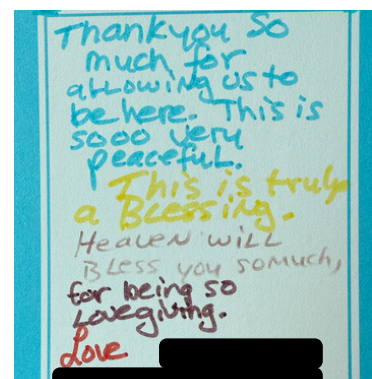 Thankyou So
much for
aLLowiNg us to
be here. This is
sooo very
peacefuL.
This is truly
a BLessing.
HeaveN wiLL
BLess you somuch,
for being so
Lovegiving.
Love